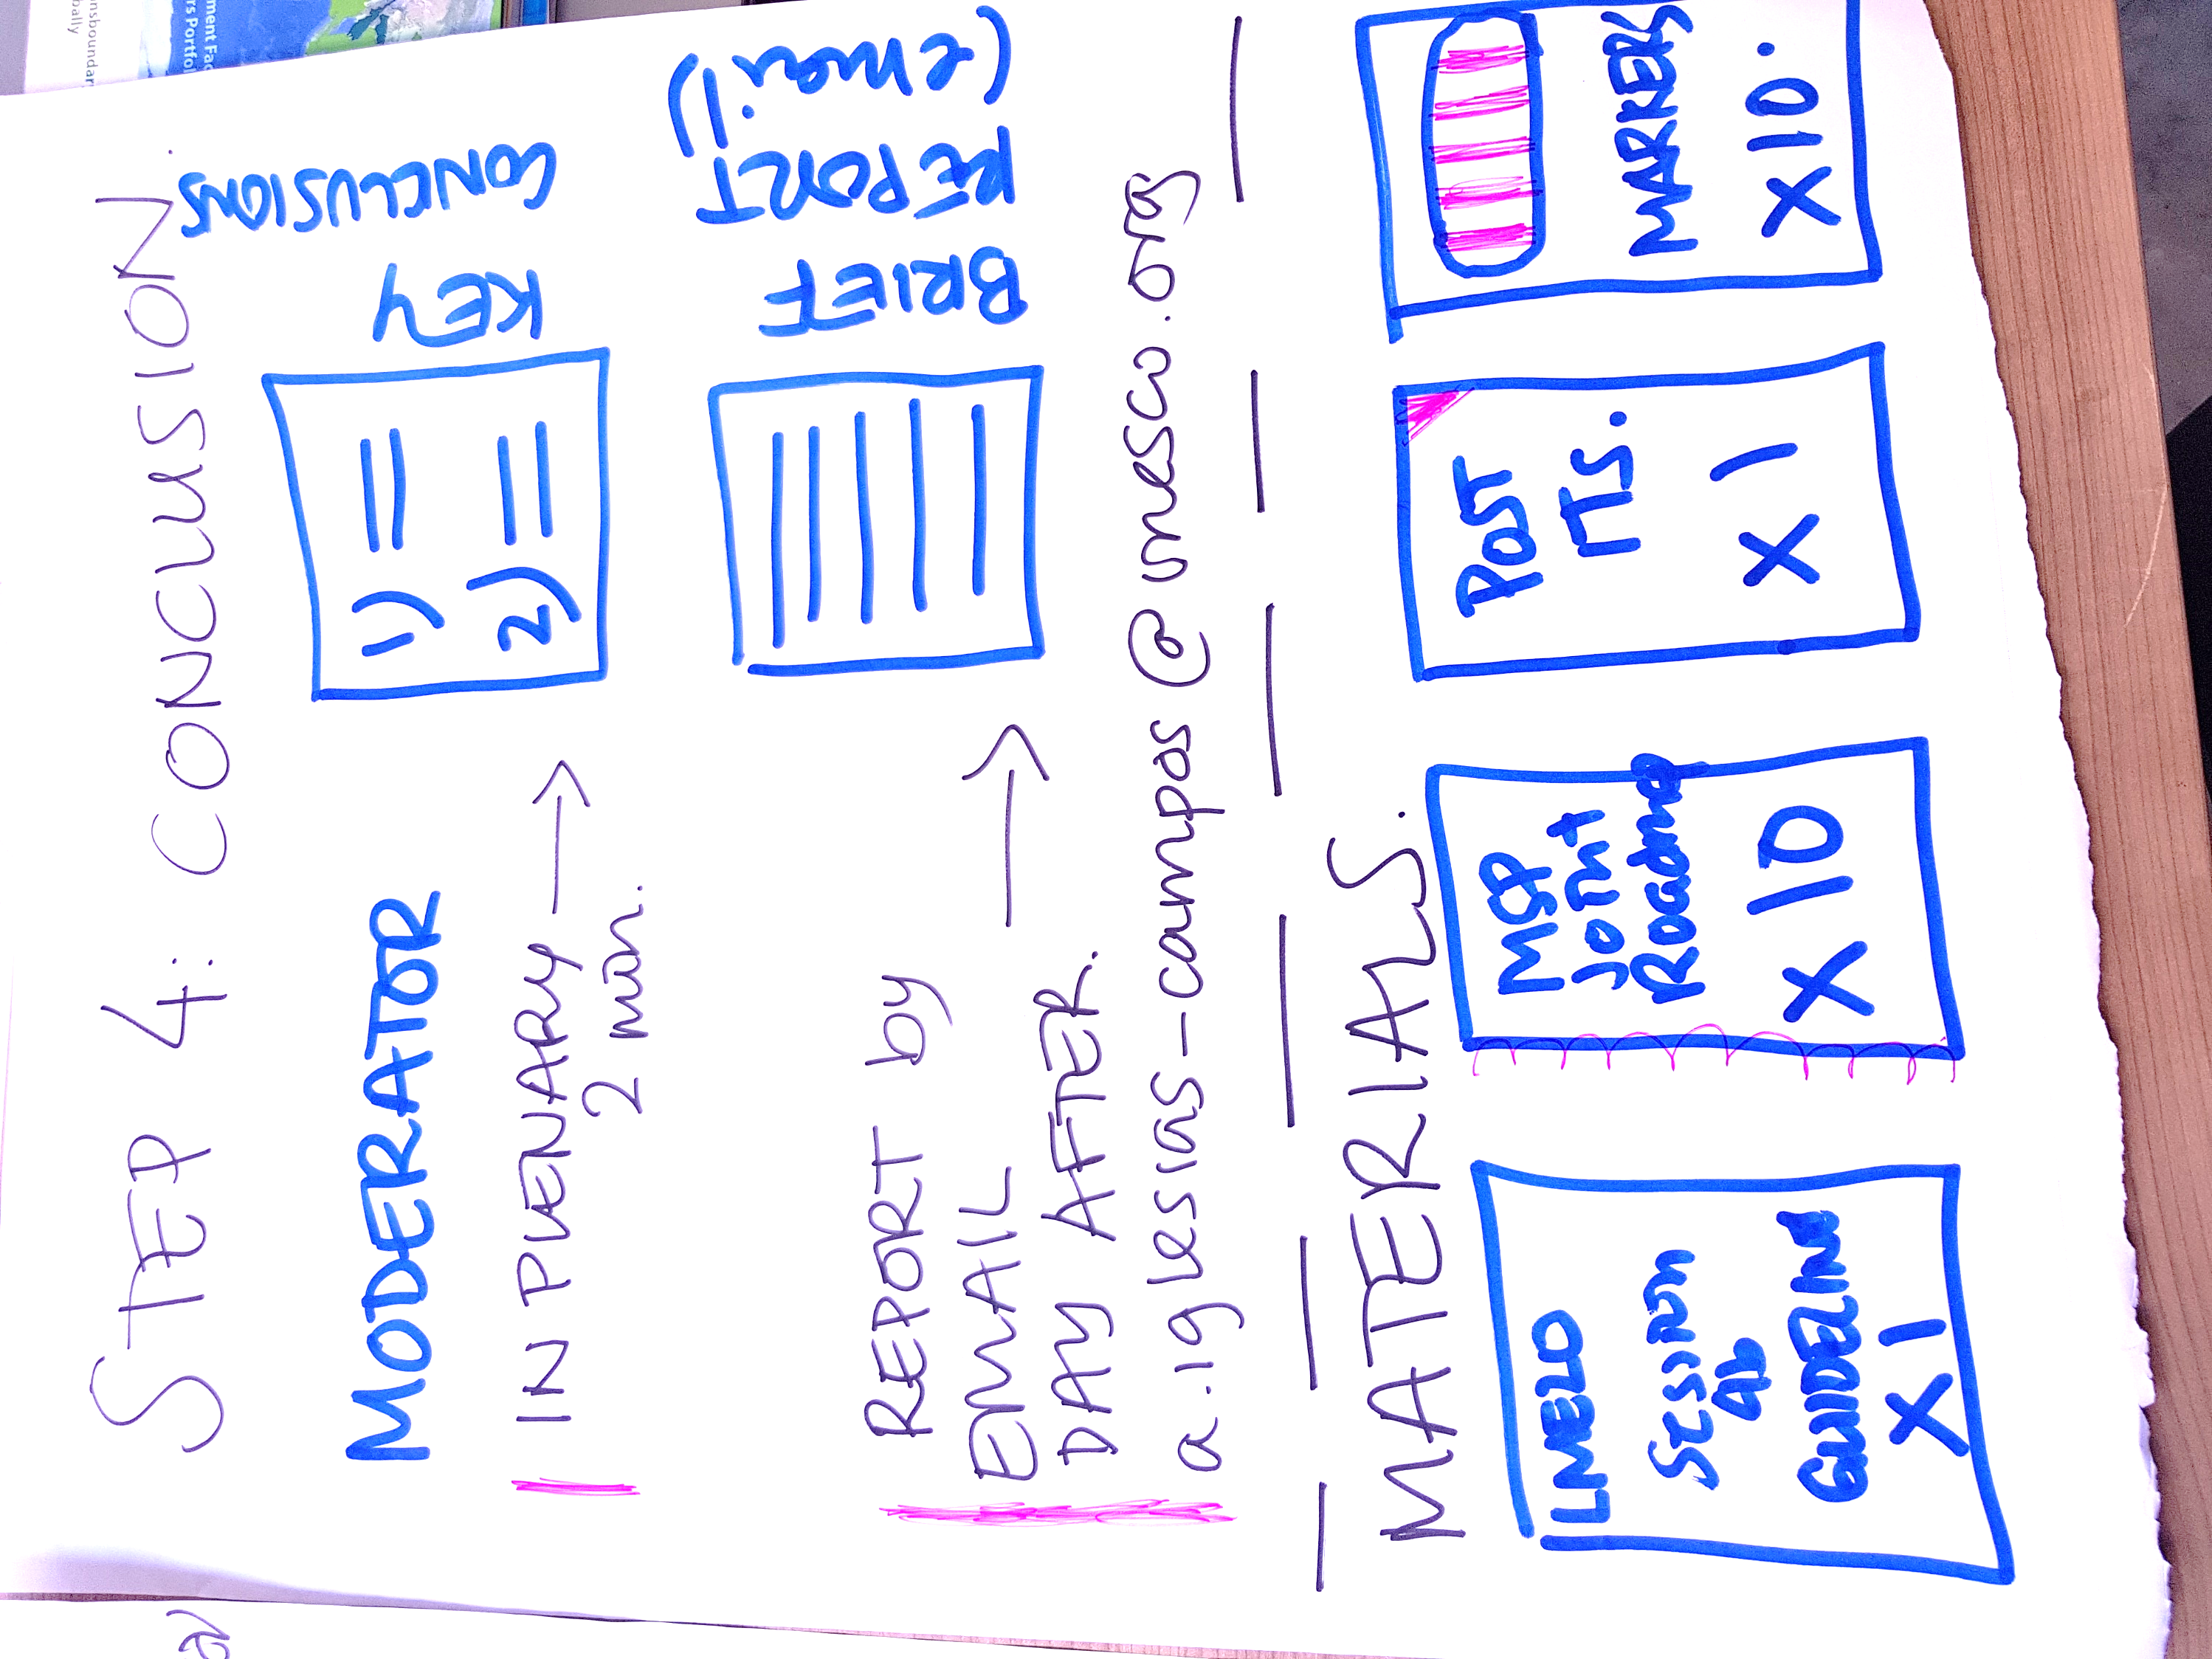 STEP 4: CONCLUSION.
MODERATOR
IN PLENARY →
2 min.
1) =
2) =
KEY
CONCLUSIONS
REPORT by
EMAIL →
DAY AFTER.
BRIEF
REPORT
(email)
a.iglesias-campos@unesco.org
MATERIALS.
LMELO
SESSION
AD
GUIDELINS
X 1
MSP
JOINT
Roadmap
X 10
POST
ITS.
X 1
MARKERS
X 10.
ment Fac
rs Portfol
nsboundar
bally